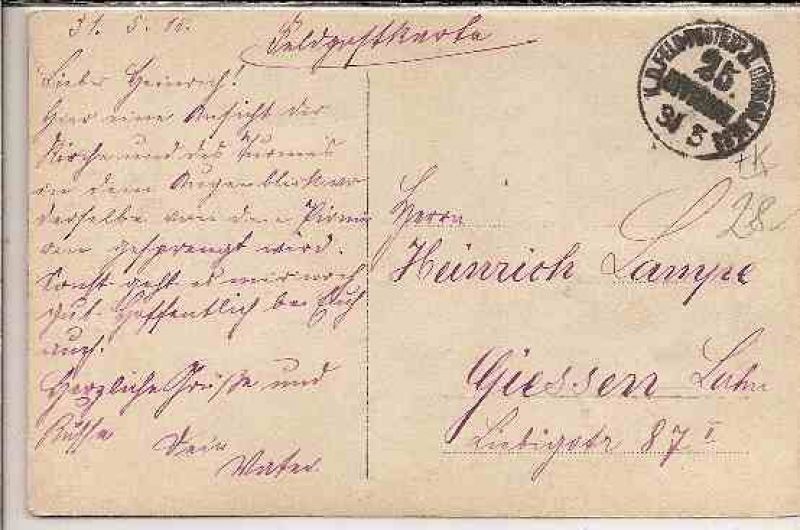 31. 5. 16.
Feldpostkarte
Lieber Heinrich!
Hier eine Ansicht der
Kirche und des Turmes
in dem Augenblick wo
derselbe von den Pionie
ren gesprengt wird.
Sonst geht es mir noch
gut. Hoffentlich bei Euch
auch.
Herzliche Grüße und
Küsse
Dein
Vater
25.
DIVISION
31 5
+K
28
Herrn
Heinrich Lampe
Giessen Lahn
Liebigstr 87 I